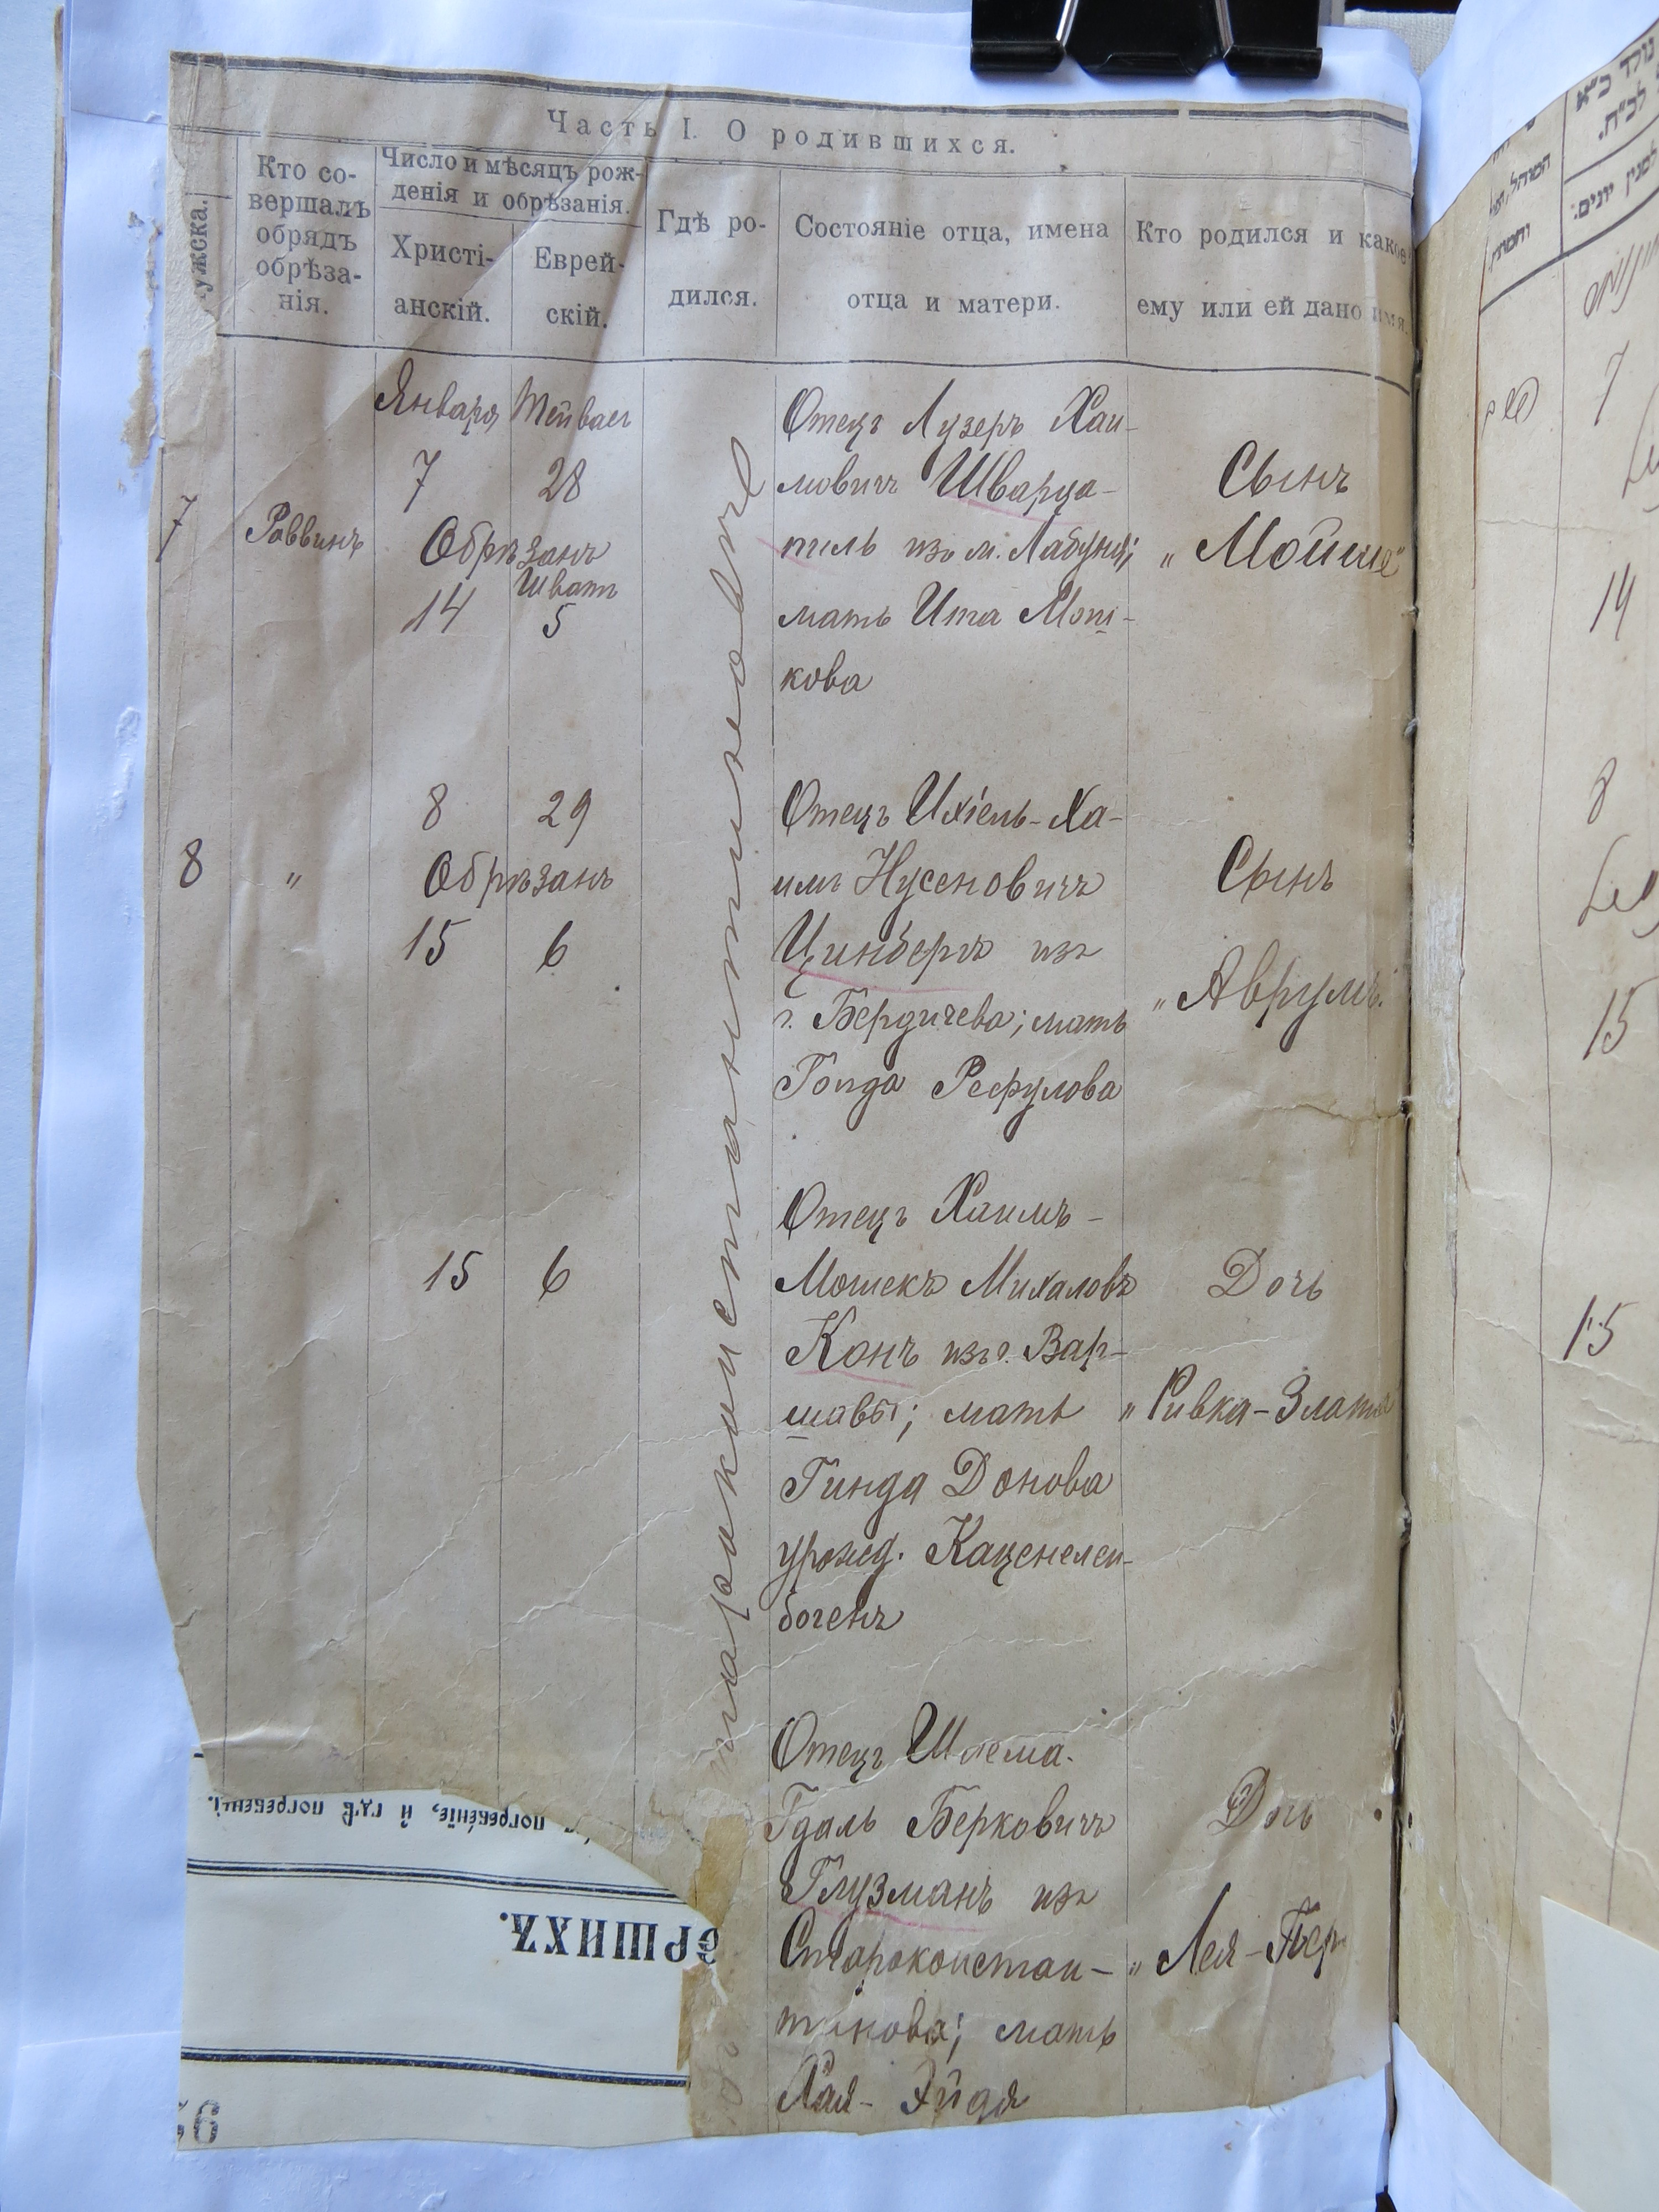 Часть I. О родившихся.
Кто со-
вершалъ
обрядъ
обрѣза-
нія.
Число и мѣсяцъ рож-
денія и обрѣзанія.
Христі-
анскій.
Еврей-
скій.
Гдѣ ро-
дился.
Состояніе отца, имена
отца и матери.
Кто родился и какое
ему или ей дано имя.
7
Раввинъ
Января Тейвас
7 28
Обрѣзанъ
Шватъ
14 5
Отецъ Лузеръ Хаи-
мовичъ Шварца-
пель изъ м. Лабуня;
мать Ита Мош-
кова
Сынъ
„Мойше"
8
"
8 29
Обрѣзанъ
15 6
Отецъ Ихіель-Ха-
имъ Нусеновичъ
Цинбергъ изъ
г. Бердичева; мать
Гольда Рефулова
Сынъ
„Аврумъ.
15 6
Отецъ Хаимъ-
Мошекъ Михаловъ
Конъ изъ г. Вар-
шавы; мать
Гинда Донова
урожд. Каценелен-
богенъ
Дочь
„Ривка-Злата
Отецъ Шлема-
Гдаль Берковичъ
Глузманъ изъ
Староконстан-
тинова; мать
Хая-Эйдя
Дочь
„Лея-Пер
тароконстантиновѣ
погребеніе, и гдѣ погребенъ.
ЕРШИХЪ.